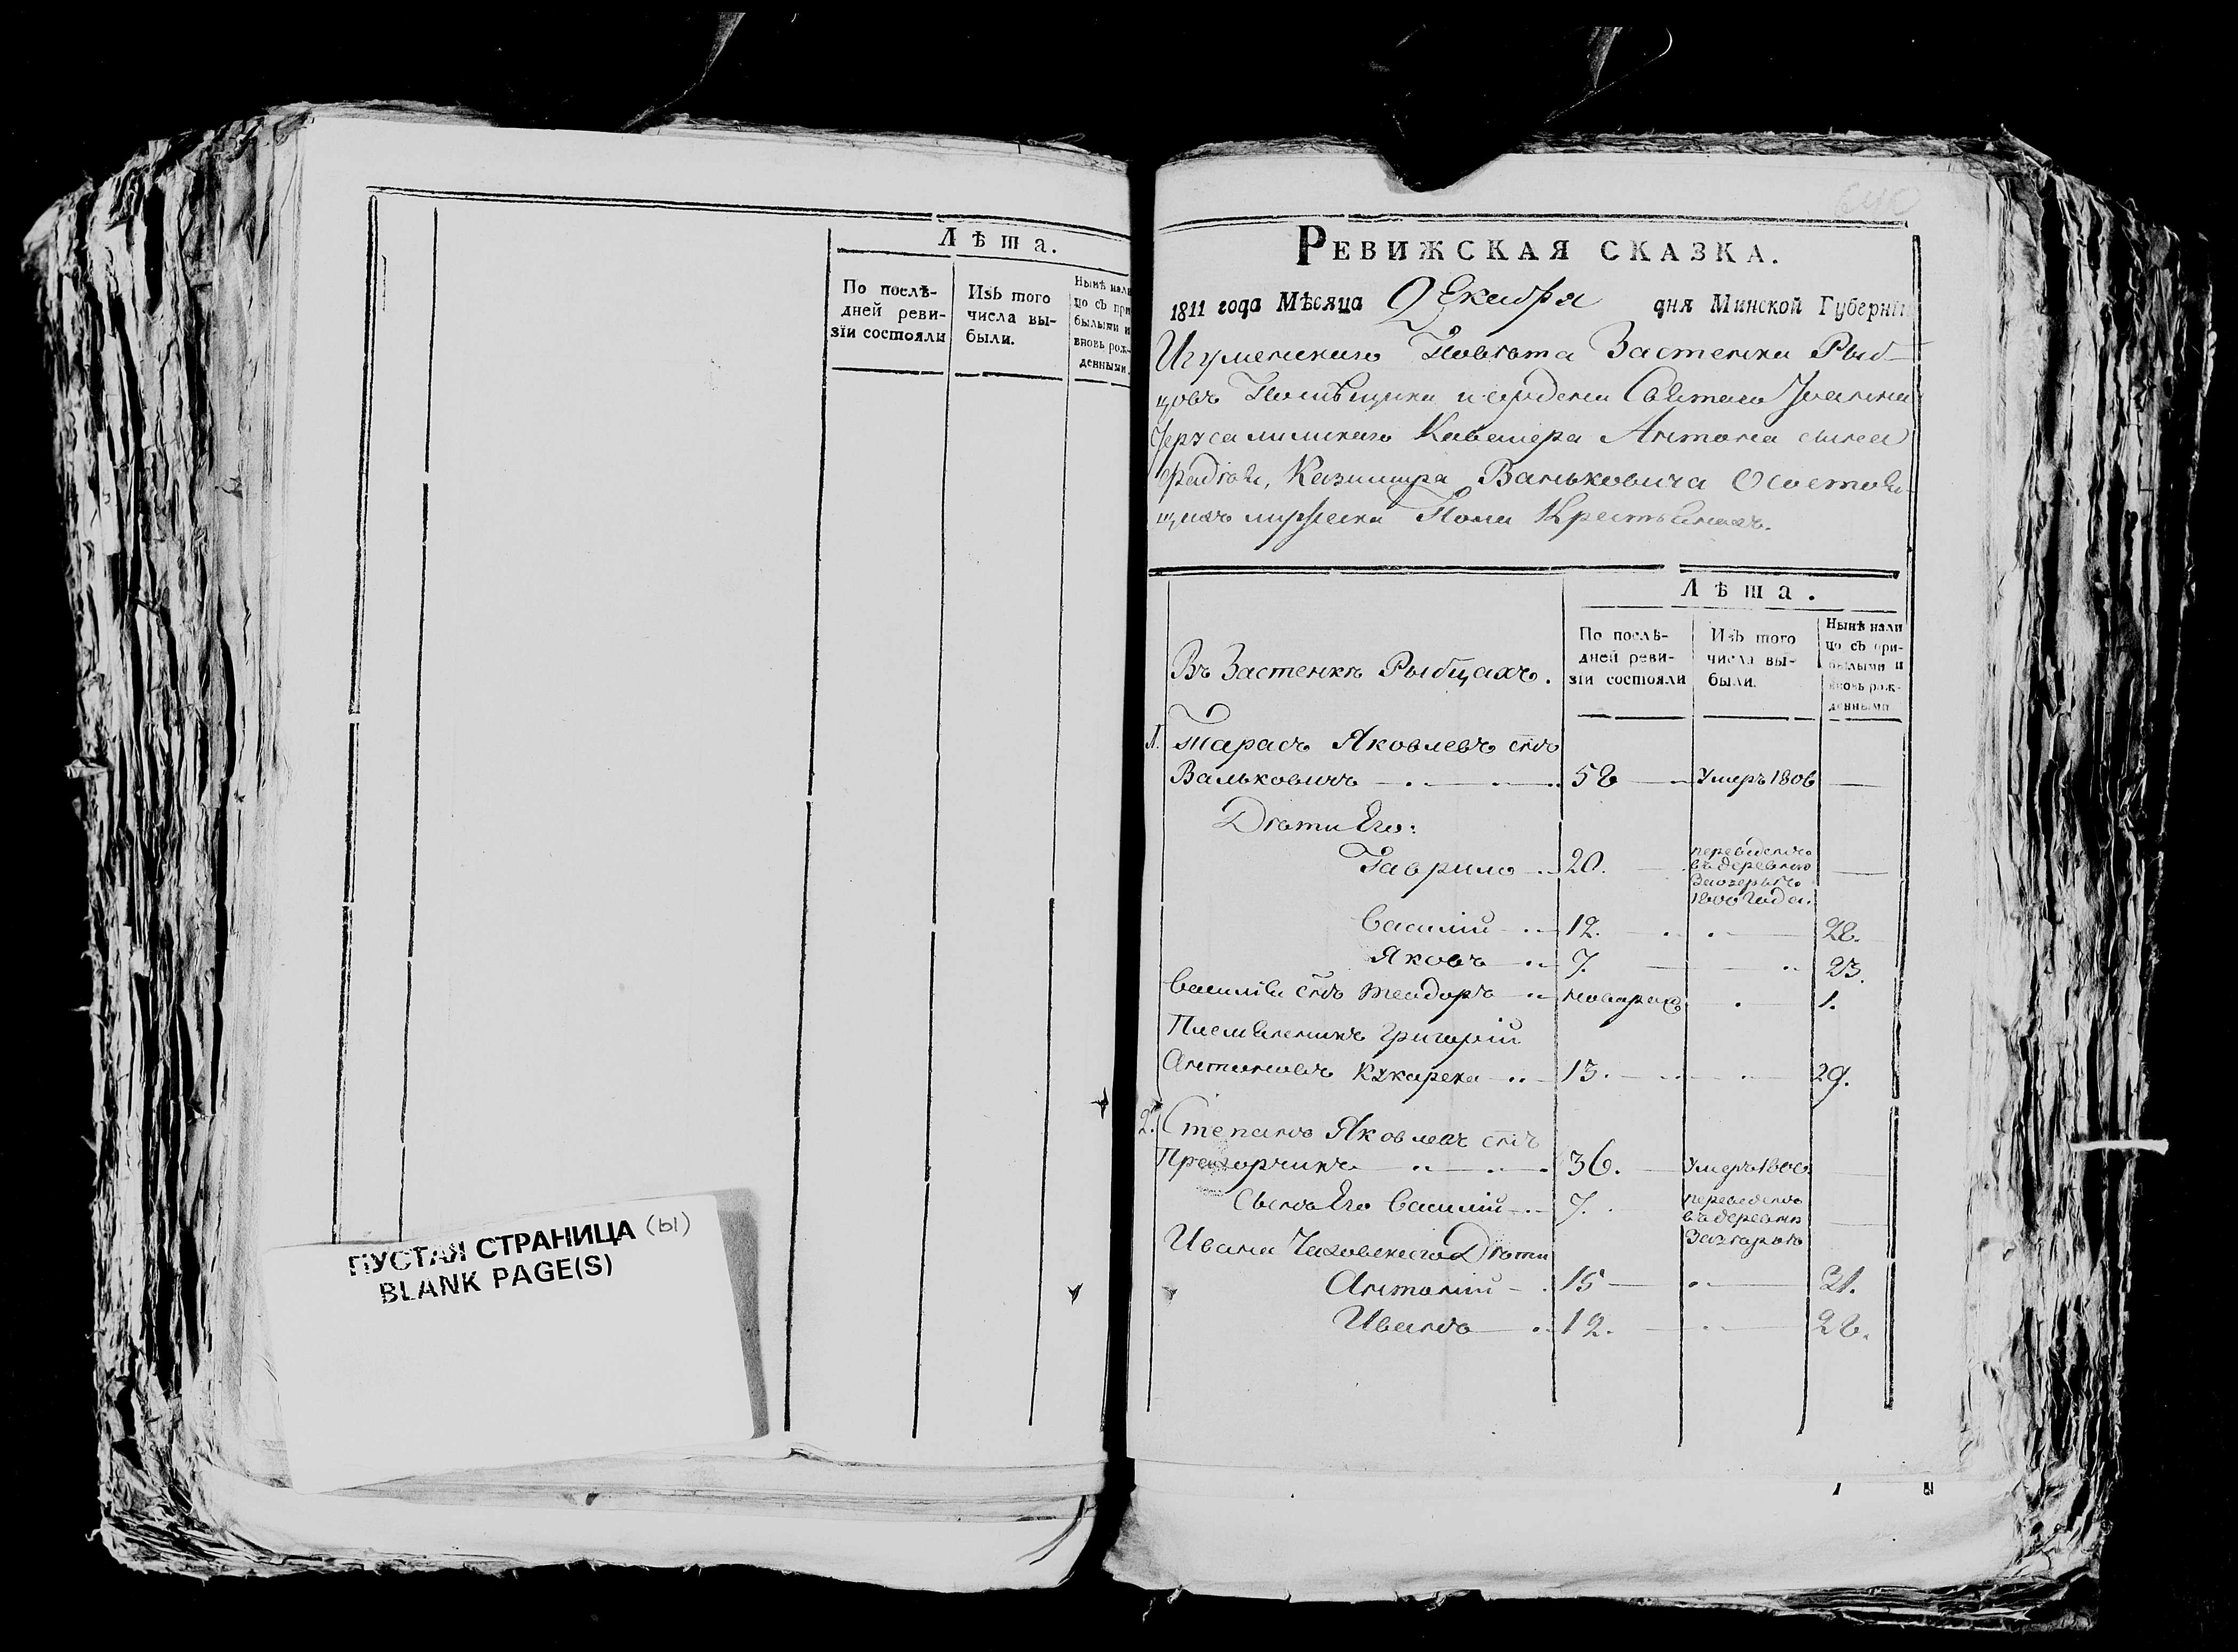 Лѣта.
По послѣ-
дней реви-
зіи состояли
Изъ того
числа вы-
были.
Нынѣ нали
цо съ при
былыми и
вновь рож-
денными.
ПУСТАЯ СТРАНИЦА (ы)
BLANK PAGE(S)
640
РЕВИЖСКАЯ СКАЗКА.
1811 года Мѣсяца Декабря дня Минской Губерніи
Игуменскаго Повѣта Застенка Рыб-
цовъ Помѣщика и ордена Святаго Іоанна
Іерусалимскаго Кавалера Антона сына
Фадѣя, Казимира Ваньковича О состоя-
щихъ мужеска Пола Крестьянахъ.
Лѣта.
По послѣ-
дней реви-
зіи состояли
Изъ того
числа вы-
были.
Нынѣ нали
цо съ при-
былыми и
вновь рож-
денными
Въ Застенкѣ Рыбцахъ.
1. Тарасъ Яковлевъ снъ
Вальковичъ 58 Умеръ 1806
Дѣти Его:
Гаврило 20. переведенъ
въ деревню
Заозерье
1800 Года.
Василій 12. 28.
Яковъ 7. 23.
Василія снъ Теодоръ новорож 1.
Племянникъ Григорій
Антоновъ Кукарека 13. 29.
2. Степанъ Яковлевъ снъ
36. Умеръ 1800
Сынъ Его Василій 7. переведенъ
въ деревню
Ивана Дѣти
Антоній 15 31.
Иванъ 12. 28.